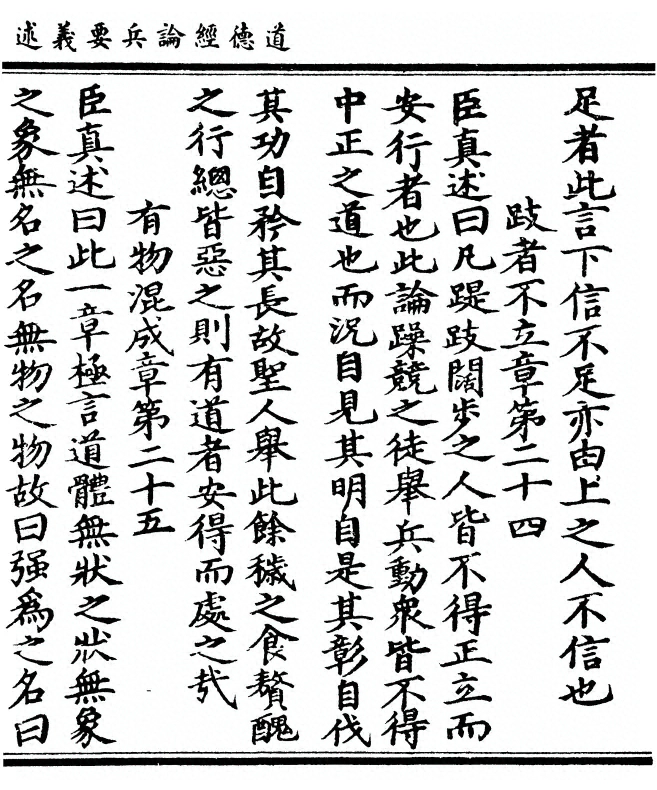 道德經論兵要義述
足者此言下信不足亦由上之人不信也
跂者不立章第二十四
臣真述曰凡踶跂闊步之人皆不得正立而
安行者也此論躁競之徒舉兵動衆皆不得
中正之道也而況自見其明自是其彰自伐
其功自矜其長故聖人舉此餘穢之食贅醜
之行總皆惡之則有道者安得而處之哉
有物混成章第二十五
臣真述曰此一章極言道體無狀之狀無象
之象無名之名無物之物故曰强爲之名曰